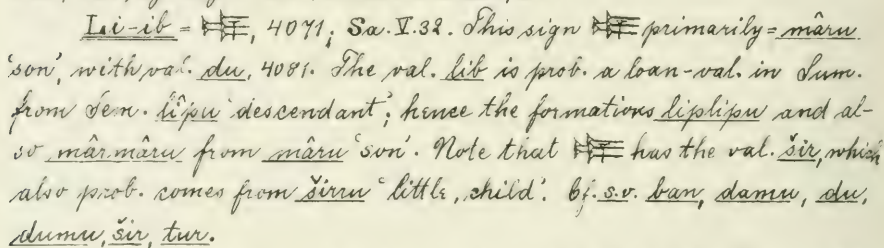 Li-ib = 𒌉, 4071; Sa. V. 32. This sign 𒌉 primarily = mâru
'son', with val. du, 4081. The val. lib is prob. a loan-val. in Sum.
from Sem. lîpu 'descendant'; hence the formations liplipu and al-
so mârmâru from mâru 'son'. Note that 𒌉 has the val. šir, which
also prob. comes from širru 'little, child'. Cf. s.v. ban, damu, du,
dumu, šir, tur.